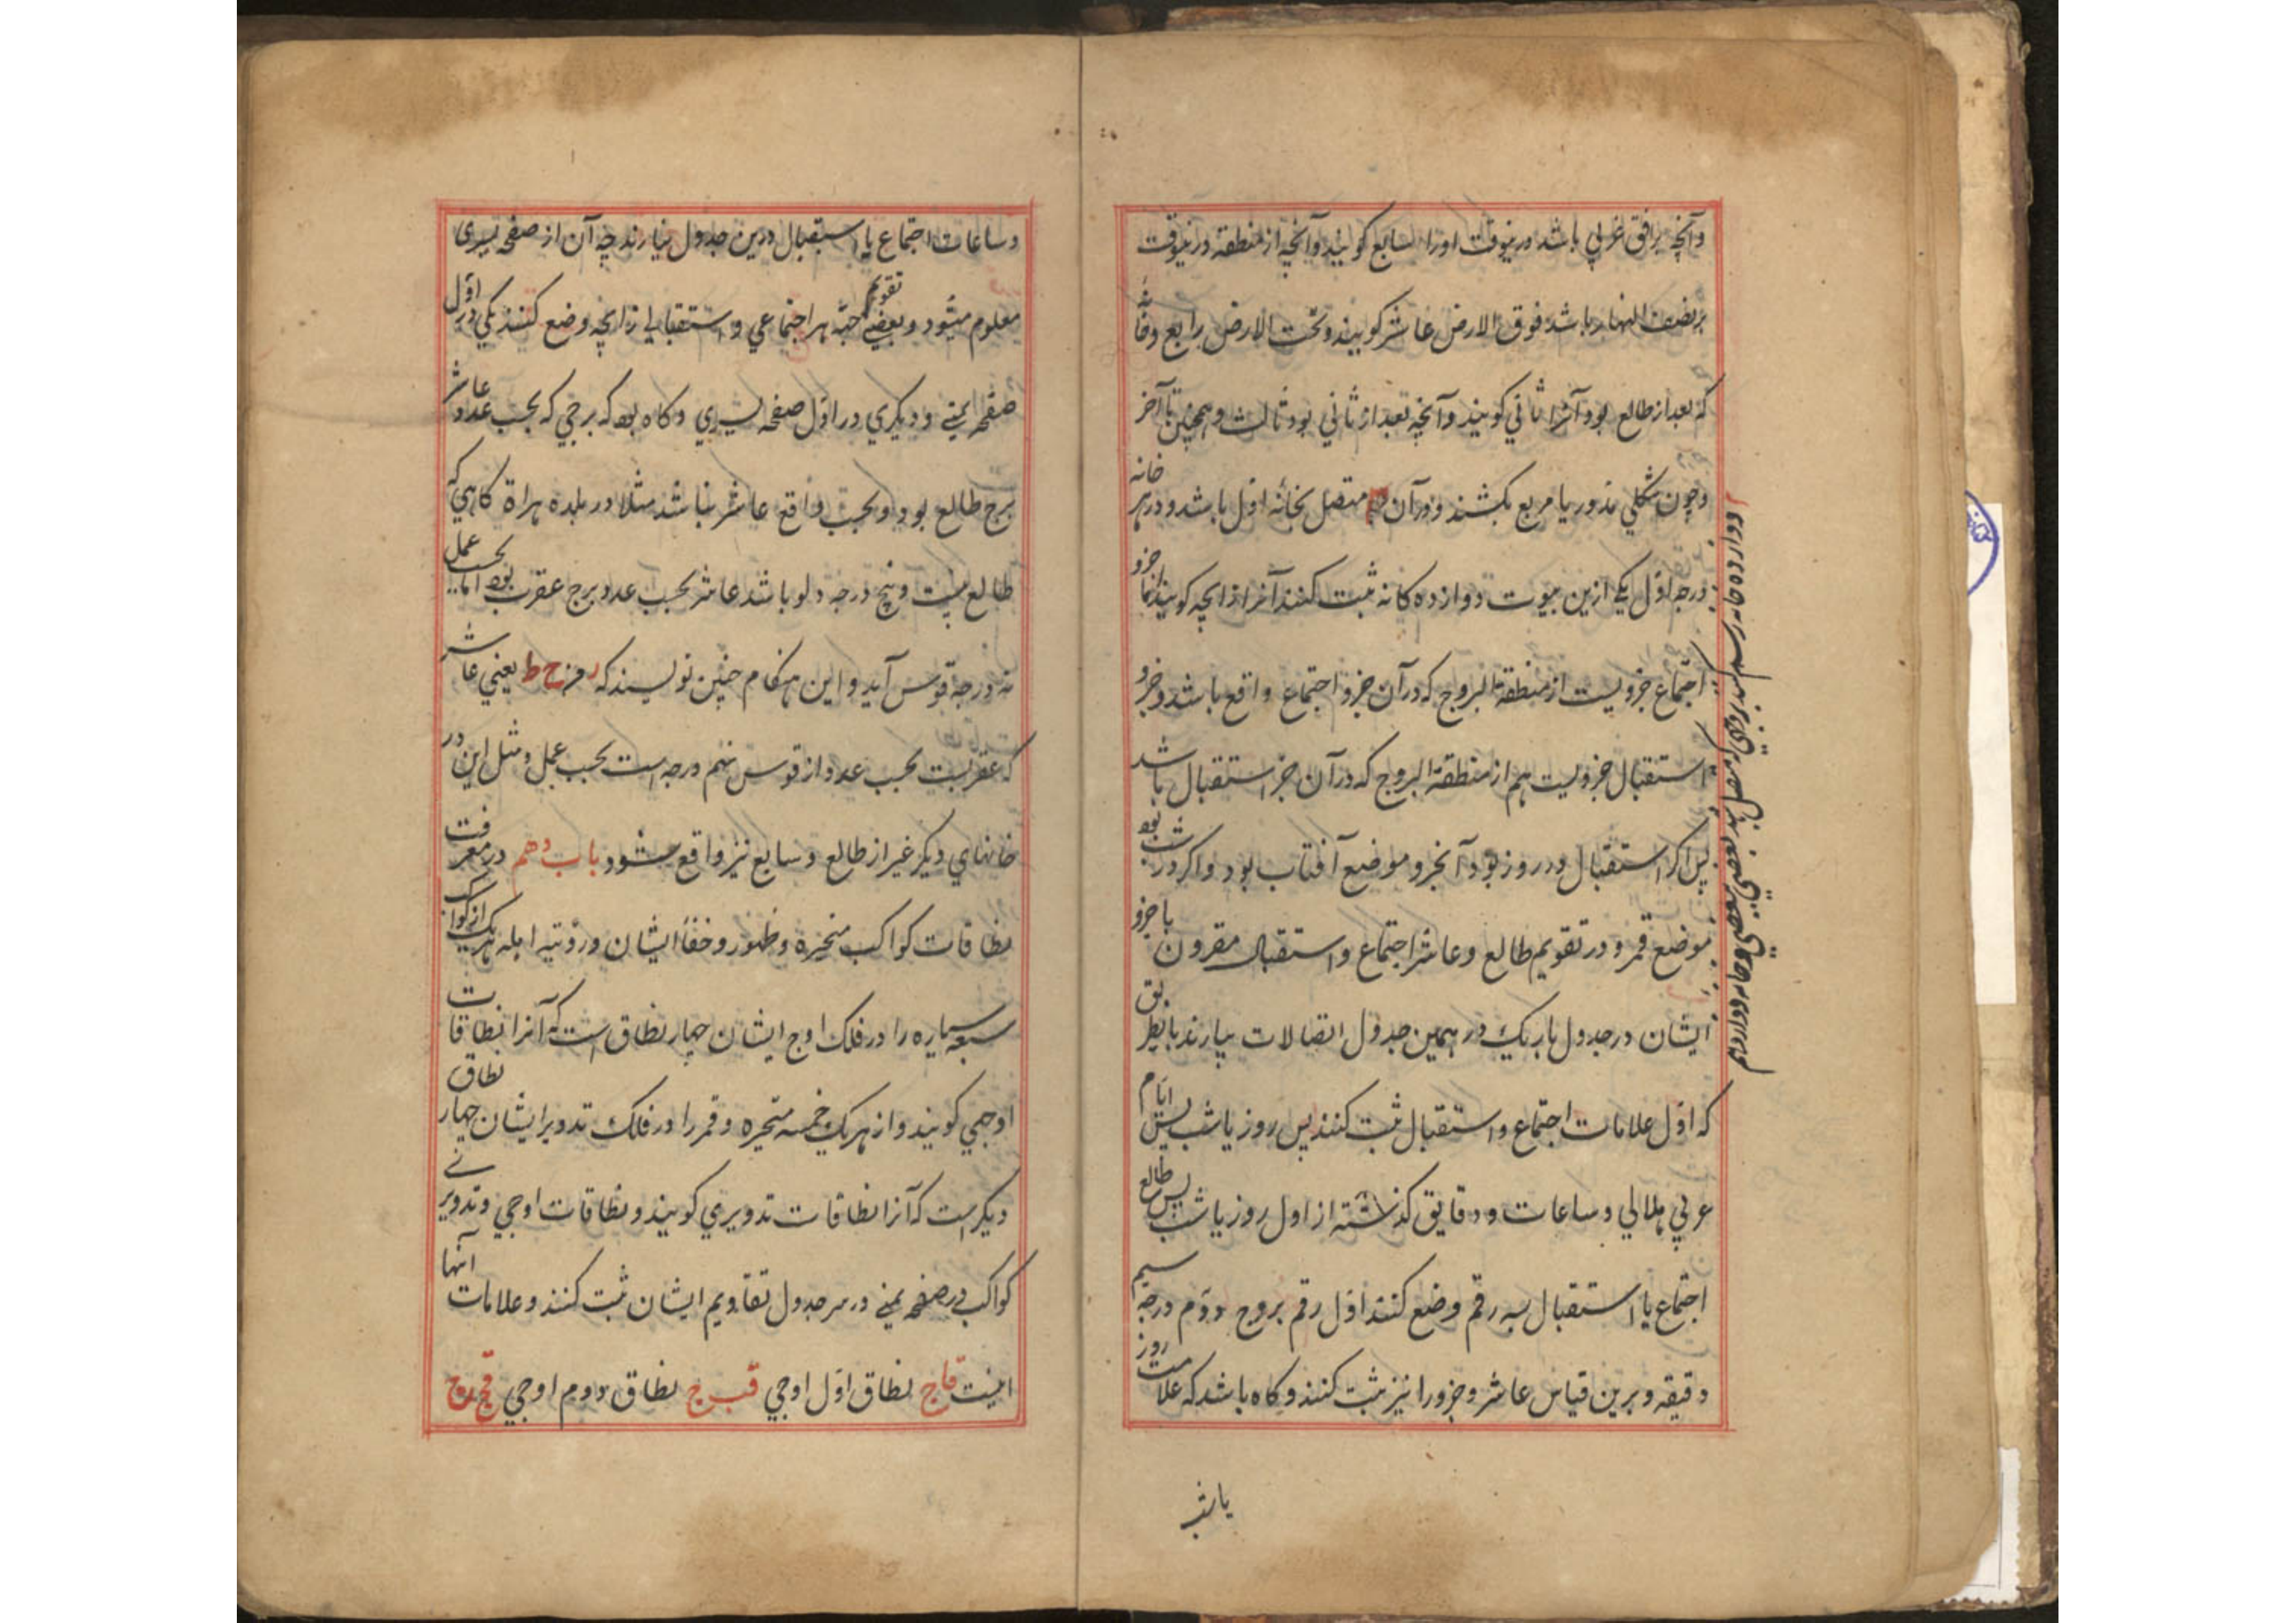 وآنچه برافق غربي باشد درينوقت اورا سابع كويند وآنچه از منطقة درينوقت
برنصف النهار باشد فوق الارض عاشر كويند وتحت الارض رابع وخانهٔ
كه بعد از طالع بود آنرا ثاني كويند وآنچه بعد از ثاني بود ثالث وهمچنين تا آخر
وچون شكلي مدور يا مربع بكشند ودرآن متصل بخانهٔ اول باشد ودرهر خانه
درجه اول يكي ازين بيوت دوازده كانه ثبت كنند آنرا زايچه كويند اما جزو
اجتماع جزويست از منطقة البروج كه درآن جزو اجتماع واقع باشد وجزو
استقبال جزويست هم از منطقة البروج كه درآن جز استقبال باشد
پس اكر استقبال در روز بود آنجزو موضع آفتاب بود واكر در شب بود
موضع قمر ودر تقويم طالع وعاشر اجتماع واستقبال مقرون با جزو
ايشان در جدول باريك در همين جدول اتصالات بيارند باينطريق
كه اول علامات اجتماع واستقبال ثبت كنند پس روز يا شب پس ايام
عربي هلالي وساعات ودقايق كذشته از اول روز يا شب پس طالع
اجتماع يا استقبال سه رقم وضع كنند اول رقم بروج دوم درجه سيم
دقيقه وبرين قياس عاشر وجزو را نيز ثبت كنند وكاه باشد كه علامت روز
يا شب
وساعات اجتماع يا استقبال درين جدول نيارند چه آن از صفحه يسرى
معلوم ميشود وبعضي تقويم جهة هر اجتماعي واستقبالي زايچه وضع كنند يكي در اول
صفحه يمني وديكري در اول صفحه يسري وكاه بود كه برجي كه بحسب عدد عاشر
برج طالع بود وبحسب واقع عاشر نباشد مثلا در بلده هراة كاهي كه
طالع بيست وپنج درجه دلو باشد عاشر بحسب عدد برج عقرب بود اما بحسب عمل
نه درجه قوس آيد واين هنكام چنين نويسند كه رمز ح ط يعني عاشر
كه عقربست بحسب عدد از قوس نهم درجه است بحسب عمل ومثل اين در
خانهاي ديكر غير از طالع وسابع نيز واقع شود باب دهم در معرفت
نطاقات كواكب متحيره وظهور وخفاء ايشان ورؤيته اهله هريك از كواكب
سبعه سياره را در فلك اوج ايشان چهار نطاق است كه آنرا نطاقات
اوجي كويند واز هريك خمسه متحيره وقمر را در فلك تدوير ايشان چهار نطاق
ديكر است كه آنرا نطاقات تدويري كويند ونطاقات اوجي وتدويرنے
كواكب در صفحه يمني در سر جدول تقاويم ايشان ثبت كنند وعلامات آنها
اينست قاج نطاق اول اوجي قب ج نطاق دوم اوجي